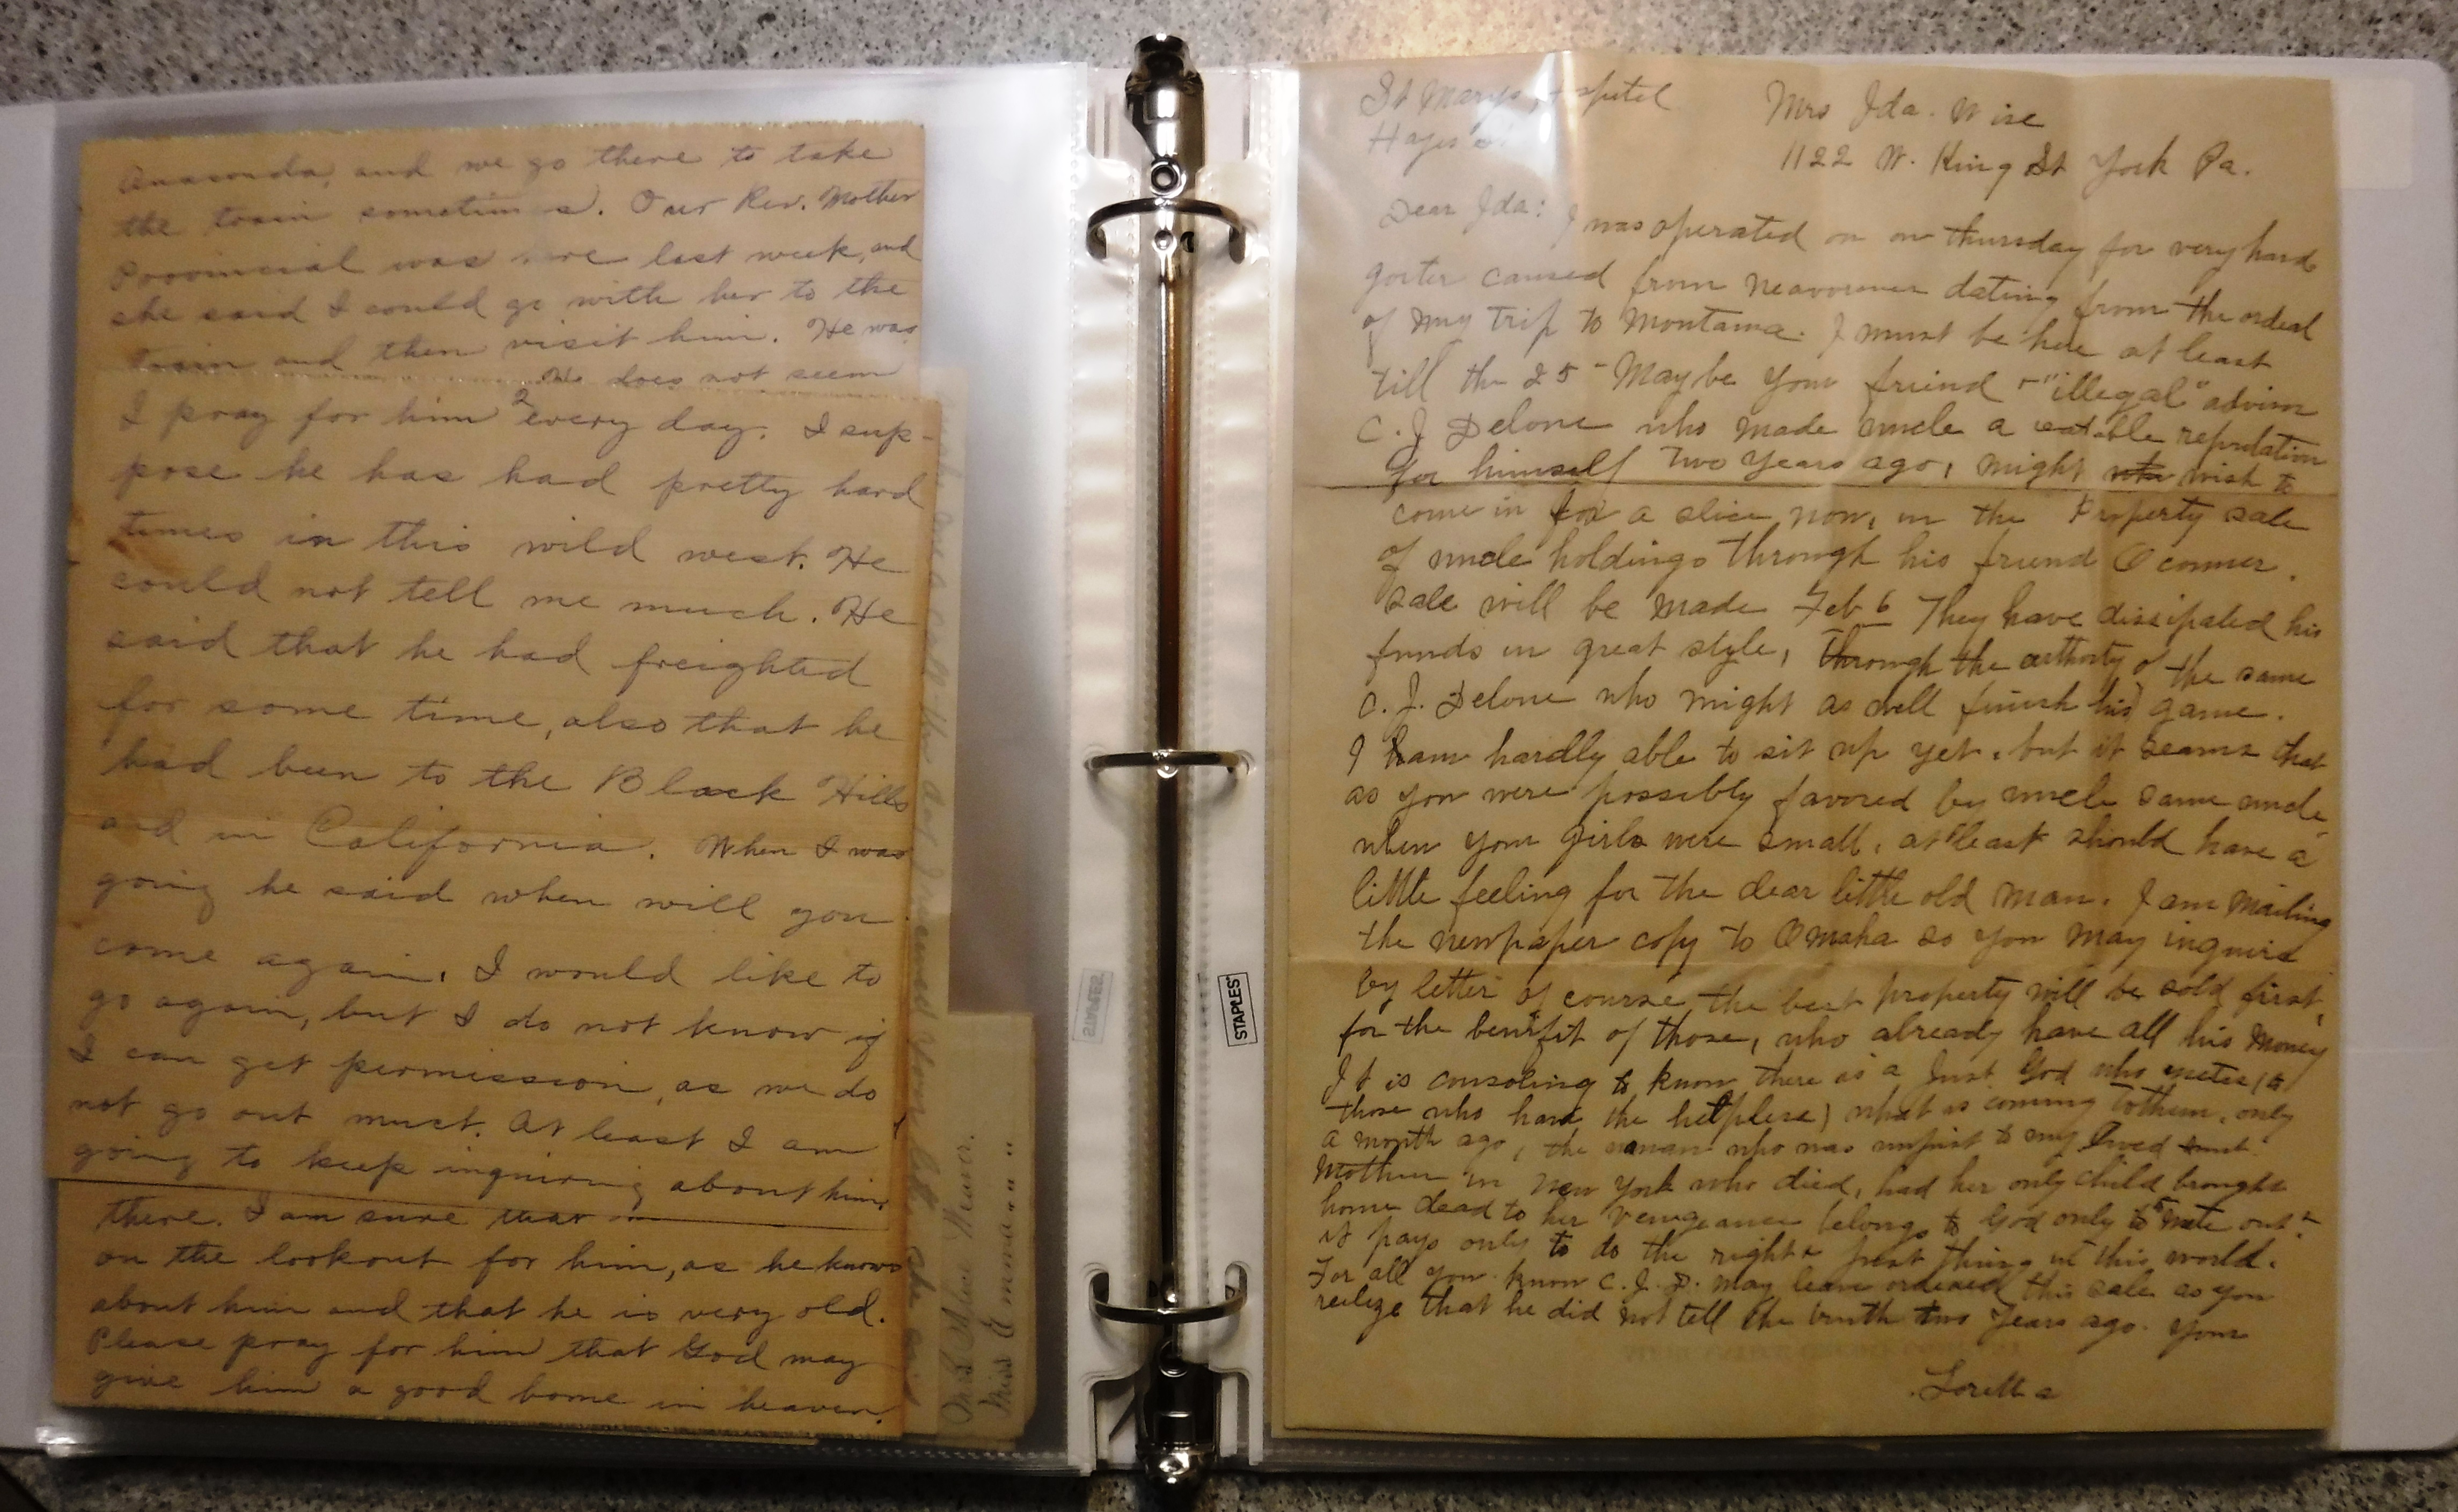 Anaconda, and we go there to take
the train sometimes. Our Rev. Mother
Provincial was here last week, and
she said I could go with her to the
train and then visit him. He was
He does not seem
2
I pray for him every day. I sup-
pose he has had pretty hard
times in this wild west. He
could not tell me much. He
said that he had freighted
for some time, also that he
had been to the Black Hills
and in California. When I was
going he said when will you
come again. I would like to
go again, but I do not know if
I can get permission, as we do
not go out must. At least I am
going to keep inquiring about him,
there. I am sure that
on the lookout for him, as he knows
about him and that he is very old.
Please pray for him that God may
give him a good home in heaven.
Mrs Alice
Miss Emma
STAPLES
St Marys Hospital
Hayes St
Mrs Ida. Wise
1122 W. King St York Pa.
Dear Ida: I was operated on on thursday for very hard
goiter caused from dating from the ordeal
of my trip to Montana. I must be here at least
till the 25 - Maybe your friend "illegal" advisor
C. J Delone who made uncle a reputation
for himself two years ago, might wish to
come in for a slice now, in the Property sale
of uncle holdings through his friend Oconner.
sale will be made Feb 6 They have dissipated his
funds in great style, through the authority of the same
C. J. Delone who might as well finish his game.
I am hardly able to sit up yet, but it seams that
as you were possibly favored by uncle same uncle
when your girls were small, at least should have a
little feeling for the dear little old man. I am mailing
the newpaper copy to Omaha so you may inquire
by letter of course the best property will be sold first,
for the benifit of those, who already have all his money
It is consoling to know there is a Just God who metes (to
those who harm the helpless) what is coming to them, only
a month ago, the woman who was unjust to my loved
Mother in New York who died, had her only child brought
home dead to her vengeance belongs to God only to mete out
it pays only to do the right & just thing in this world.
For all you know C. J. D. may have ordered this sale as you
relize that he did not tell the truth two years ago. Your
Loretta